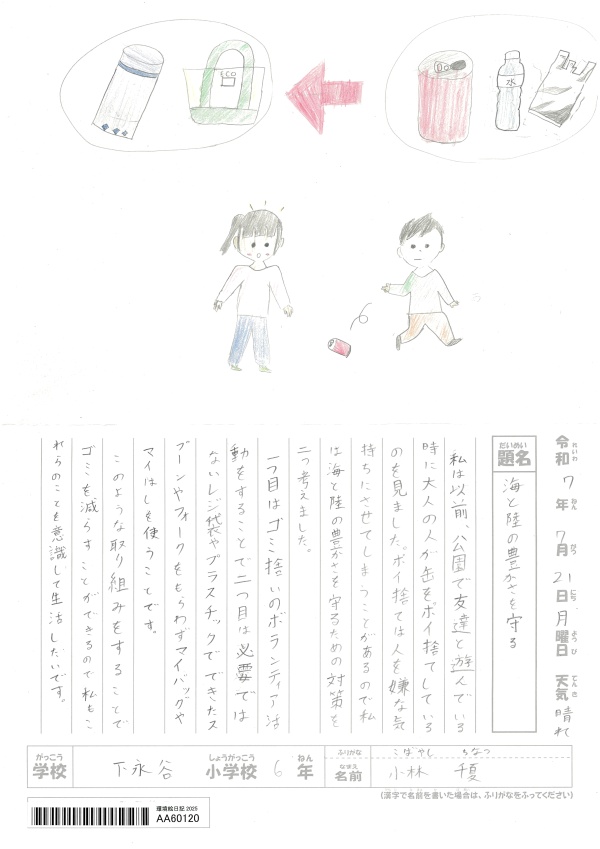 ECO
水
令和 7年 7月 21日 月曜日 天気 晴れ
題名
海と陸の豊かさを守る
私は以前、公園で友達と遊んでいる
時に大人の人が缶をポイ捨てしている
のを見ました。ポイ捨ては人を嫌な気
持ちにさせてしまうことがあるので私
は海と陸の豊かさを守るための対策を
二つ考えました。
一つ目はゴミ捨いのボランティア活
動をすることで二つ目は必要では
ないレジ袋やプラスチックでできたス
プーンやフォークをもらわずマイバッグや
マイはしを使うことです。
このような取り組みをすることで
ゴミを減らすことができるので私もこ
れらのことを意識して生活したいです。
学校 下永谷 小学校 6年
ふりがな こばやし ちなつ
名前 小林 千夏
(漢字で名前を書いた場合は、ふりがなをふってください)
環境絵日記 2025
AA60120